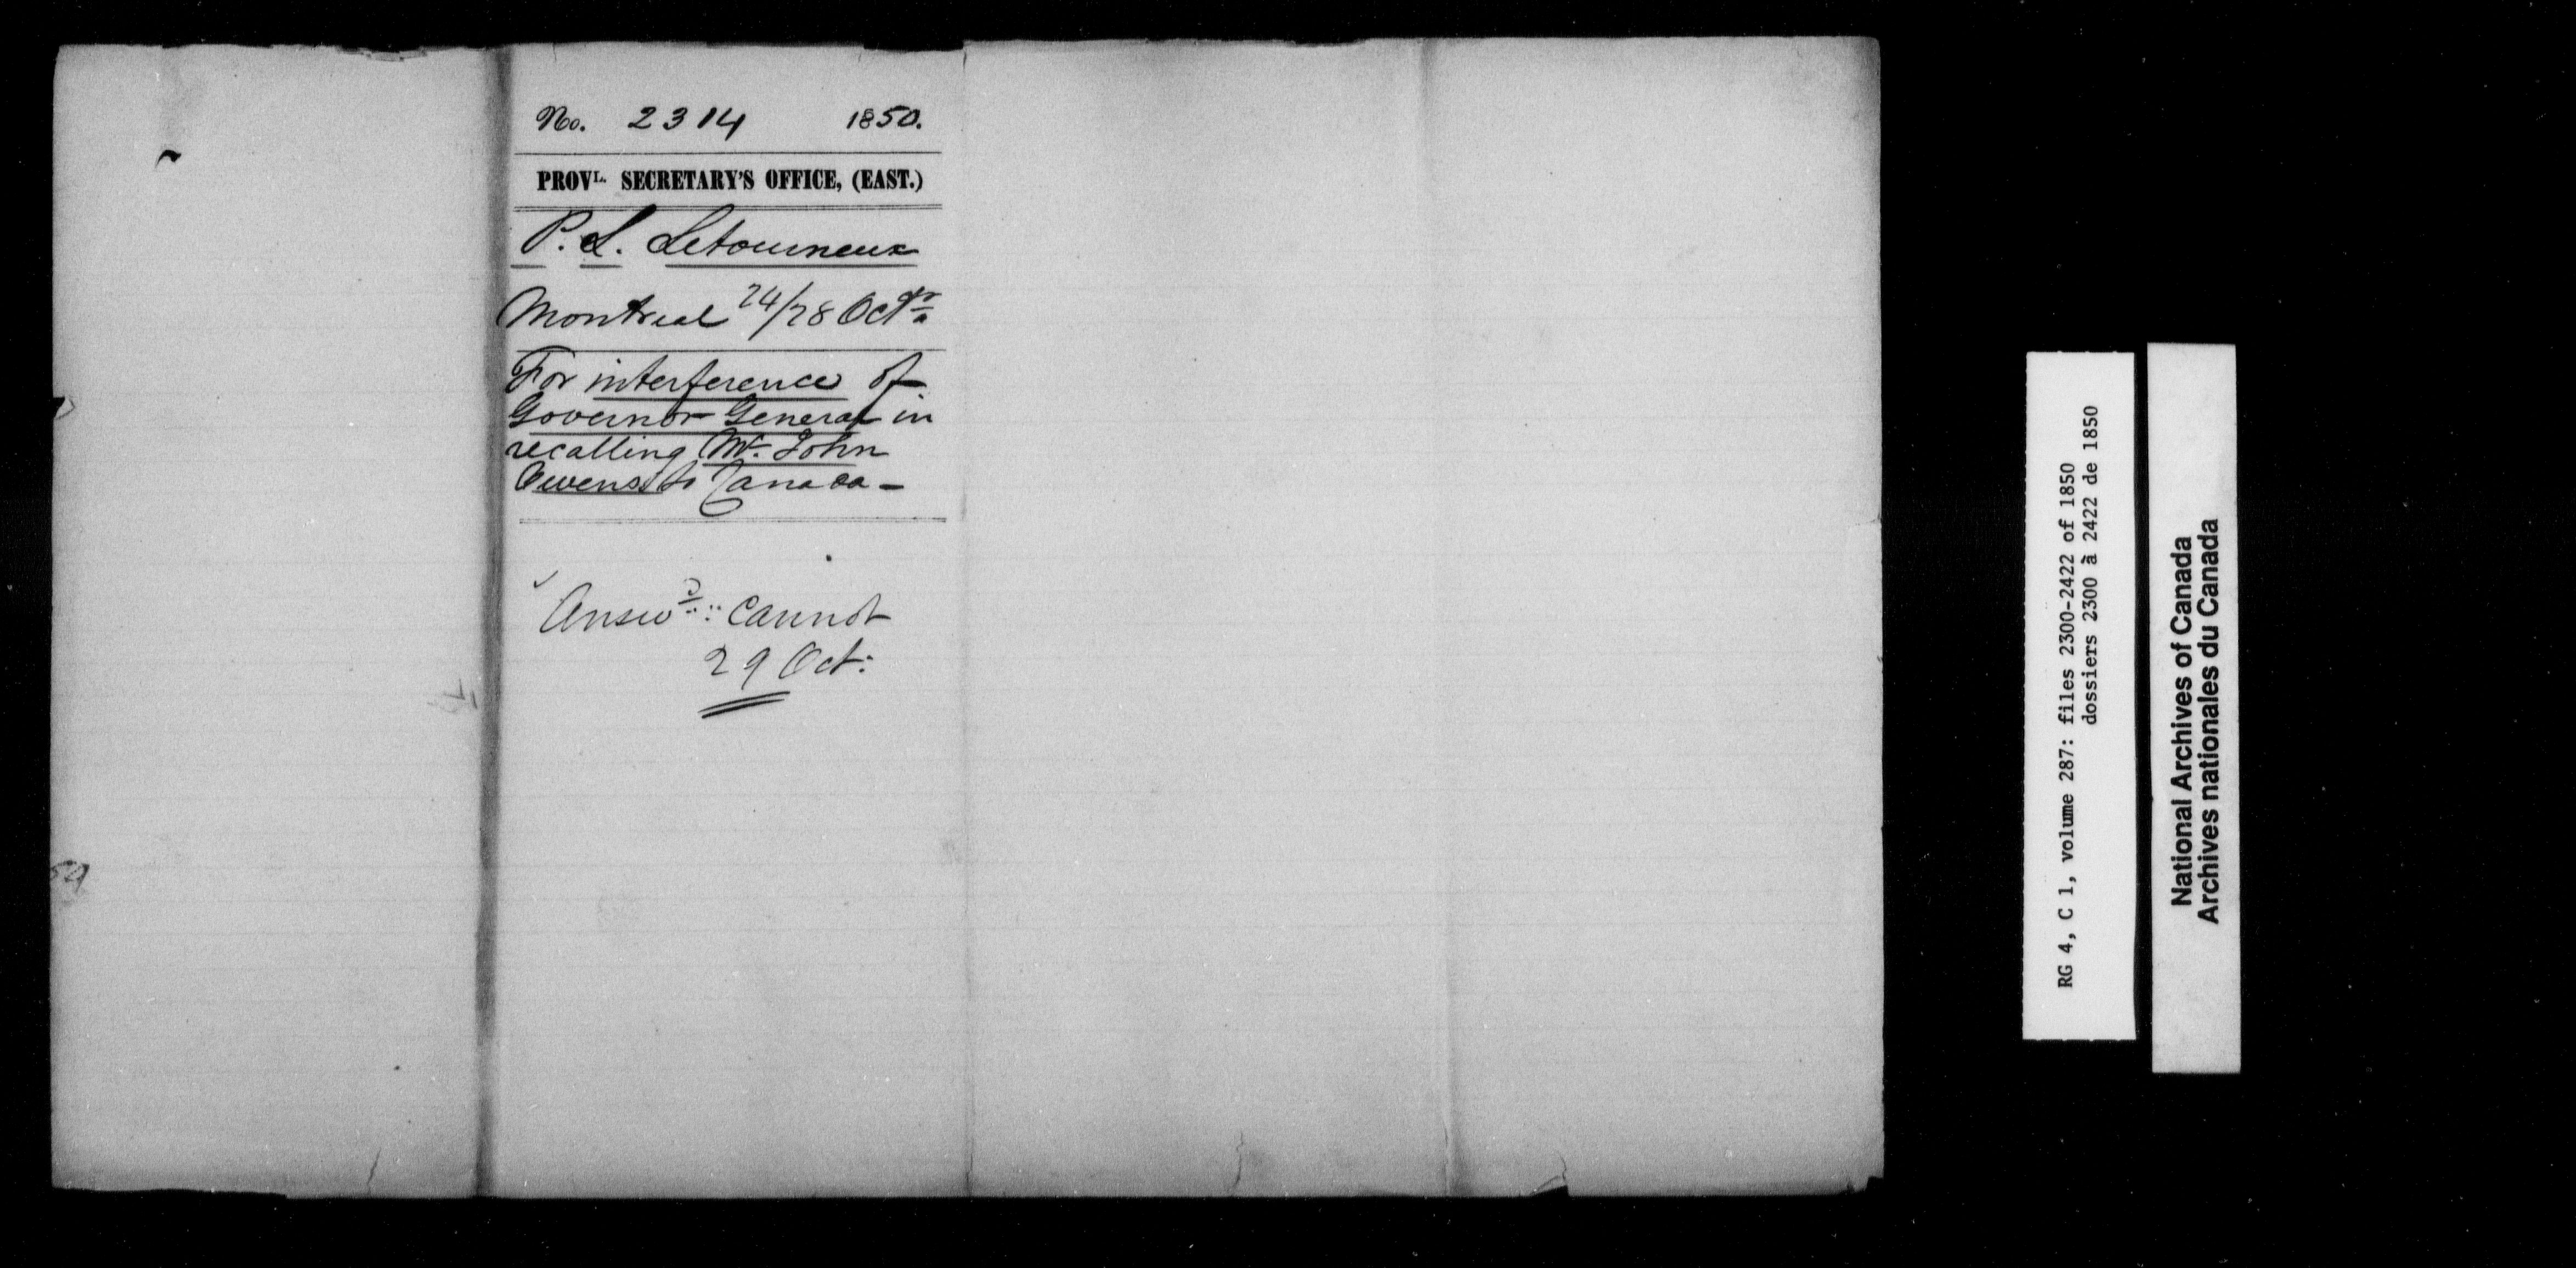 No. 2314 1850.
PROVL. SECRETARY'S OFFICE, (EAST.)
P. L. Letourneux
Montreal 24/28 Octr
For interference of
Governor General in
recalling Mr. John
Owens to Canada -
Answd:: Cannot
29 Oct:
RG 4, C 1, volume 287: files 2300-2422 of 1850
dossiers 2300 à 2422 de 1850
National Archives of Canada
Archives nationales du Canada